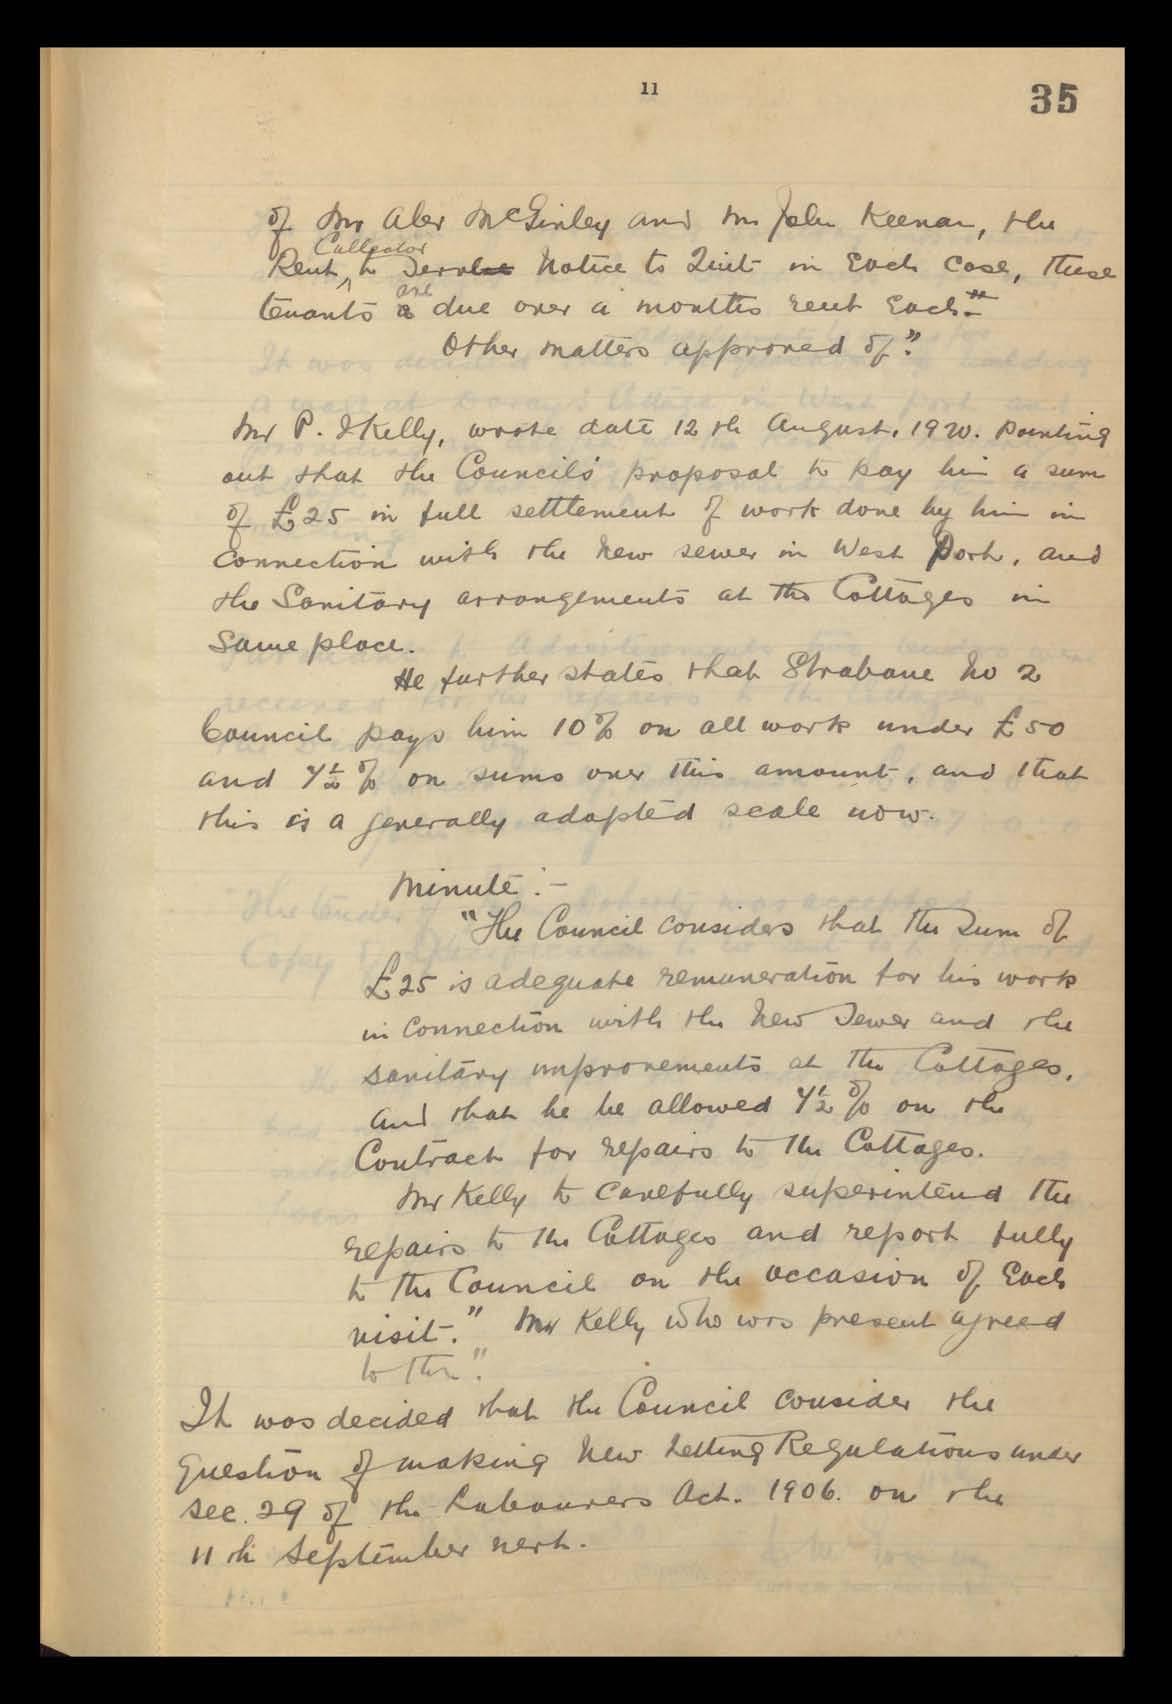 11
35
of Mr Alex McGinley and Mr John Keenan, the
Collector
Rent ^ to Serve Notice to Quit in Each Case, these
are
tenants due over a months rent Each."
Other matters approved of."
Mr P. J Kelly, wrote date 12th August. 1920. pointing
out that the Council's proposal to pay him a sum
of £25 in full settlement of work done by him in
connection with the New sewer in West Port, and
the Sanitary arrangements at the Cottages in
Same place.
He further states that Strabane No 2
Council pays him 10% on all work under £50
and 7½% on sums over this amount, and that
this is a generally adopted scale now.
Minute:-
"The Council considers that the Sum of
£25 is adequate remuneration for his work
in connection with the New Sewer and the
sanitary improvements at the Cottages,
and that he be allowed 7½% on the
Contract for repairs to the Cottages.
Mr Kelly to carefully superintend the
repairs to the Cottages and report fully
to the Council on the occasion of Each
visit." Mr Kelly who was present agreed
to this."
It was decided that the Council consider the
question of making New Letting Regulations under
Sec. 29 of the Labourers Act. 1906. on the
11th September next.